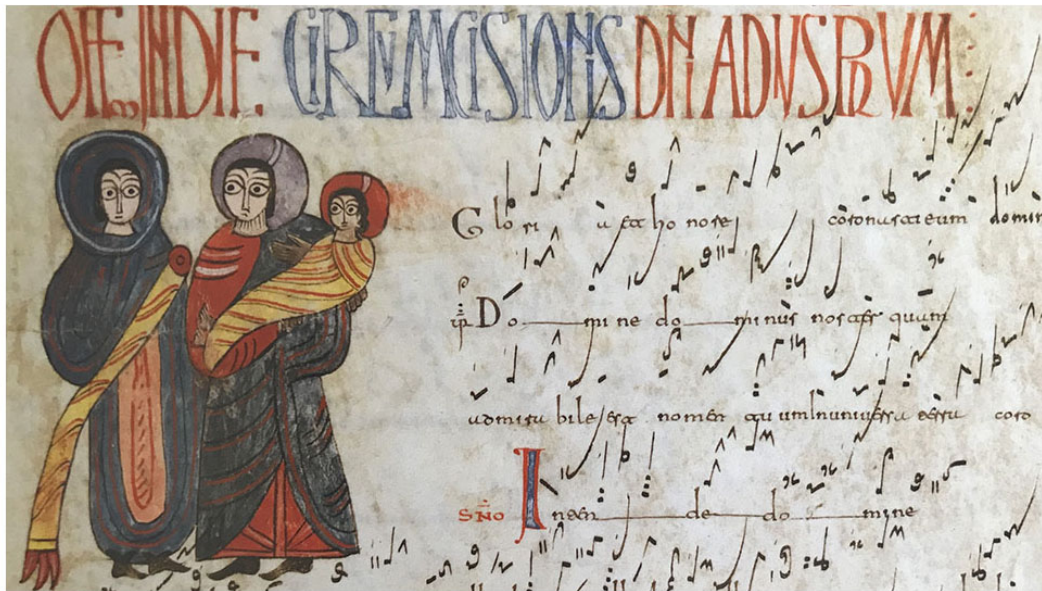 OFFM IN DIE CIRCUMCISIONS DNI AD VSPRUM
Gloria et honore coronasti eum domin
Domine dominus noster quam
admirabile est nomen tuum in universa terra coro
SNO Intende domine